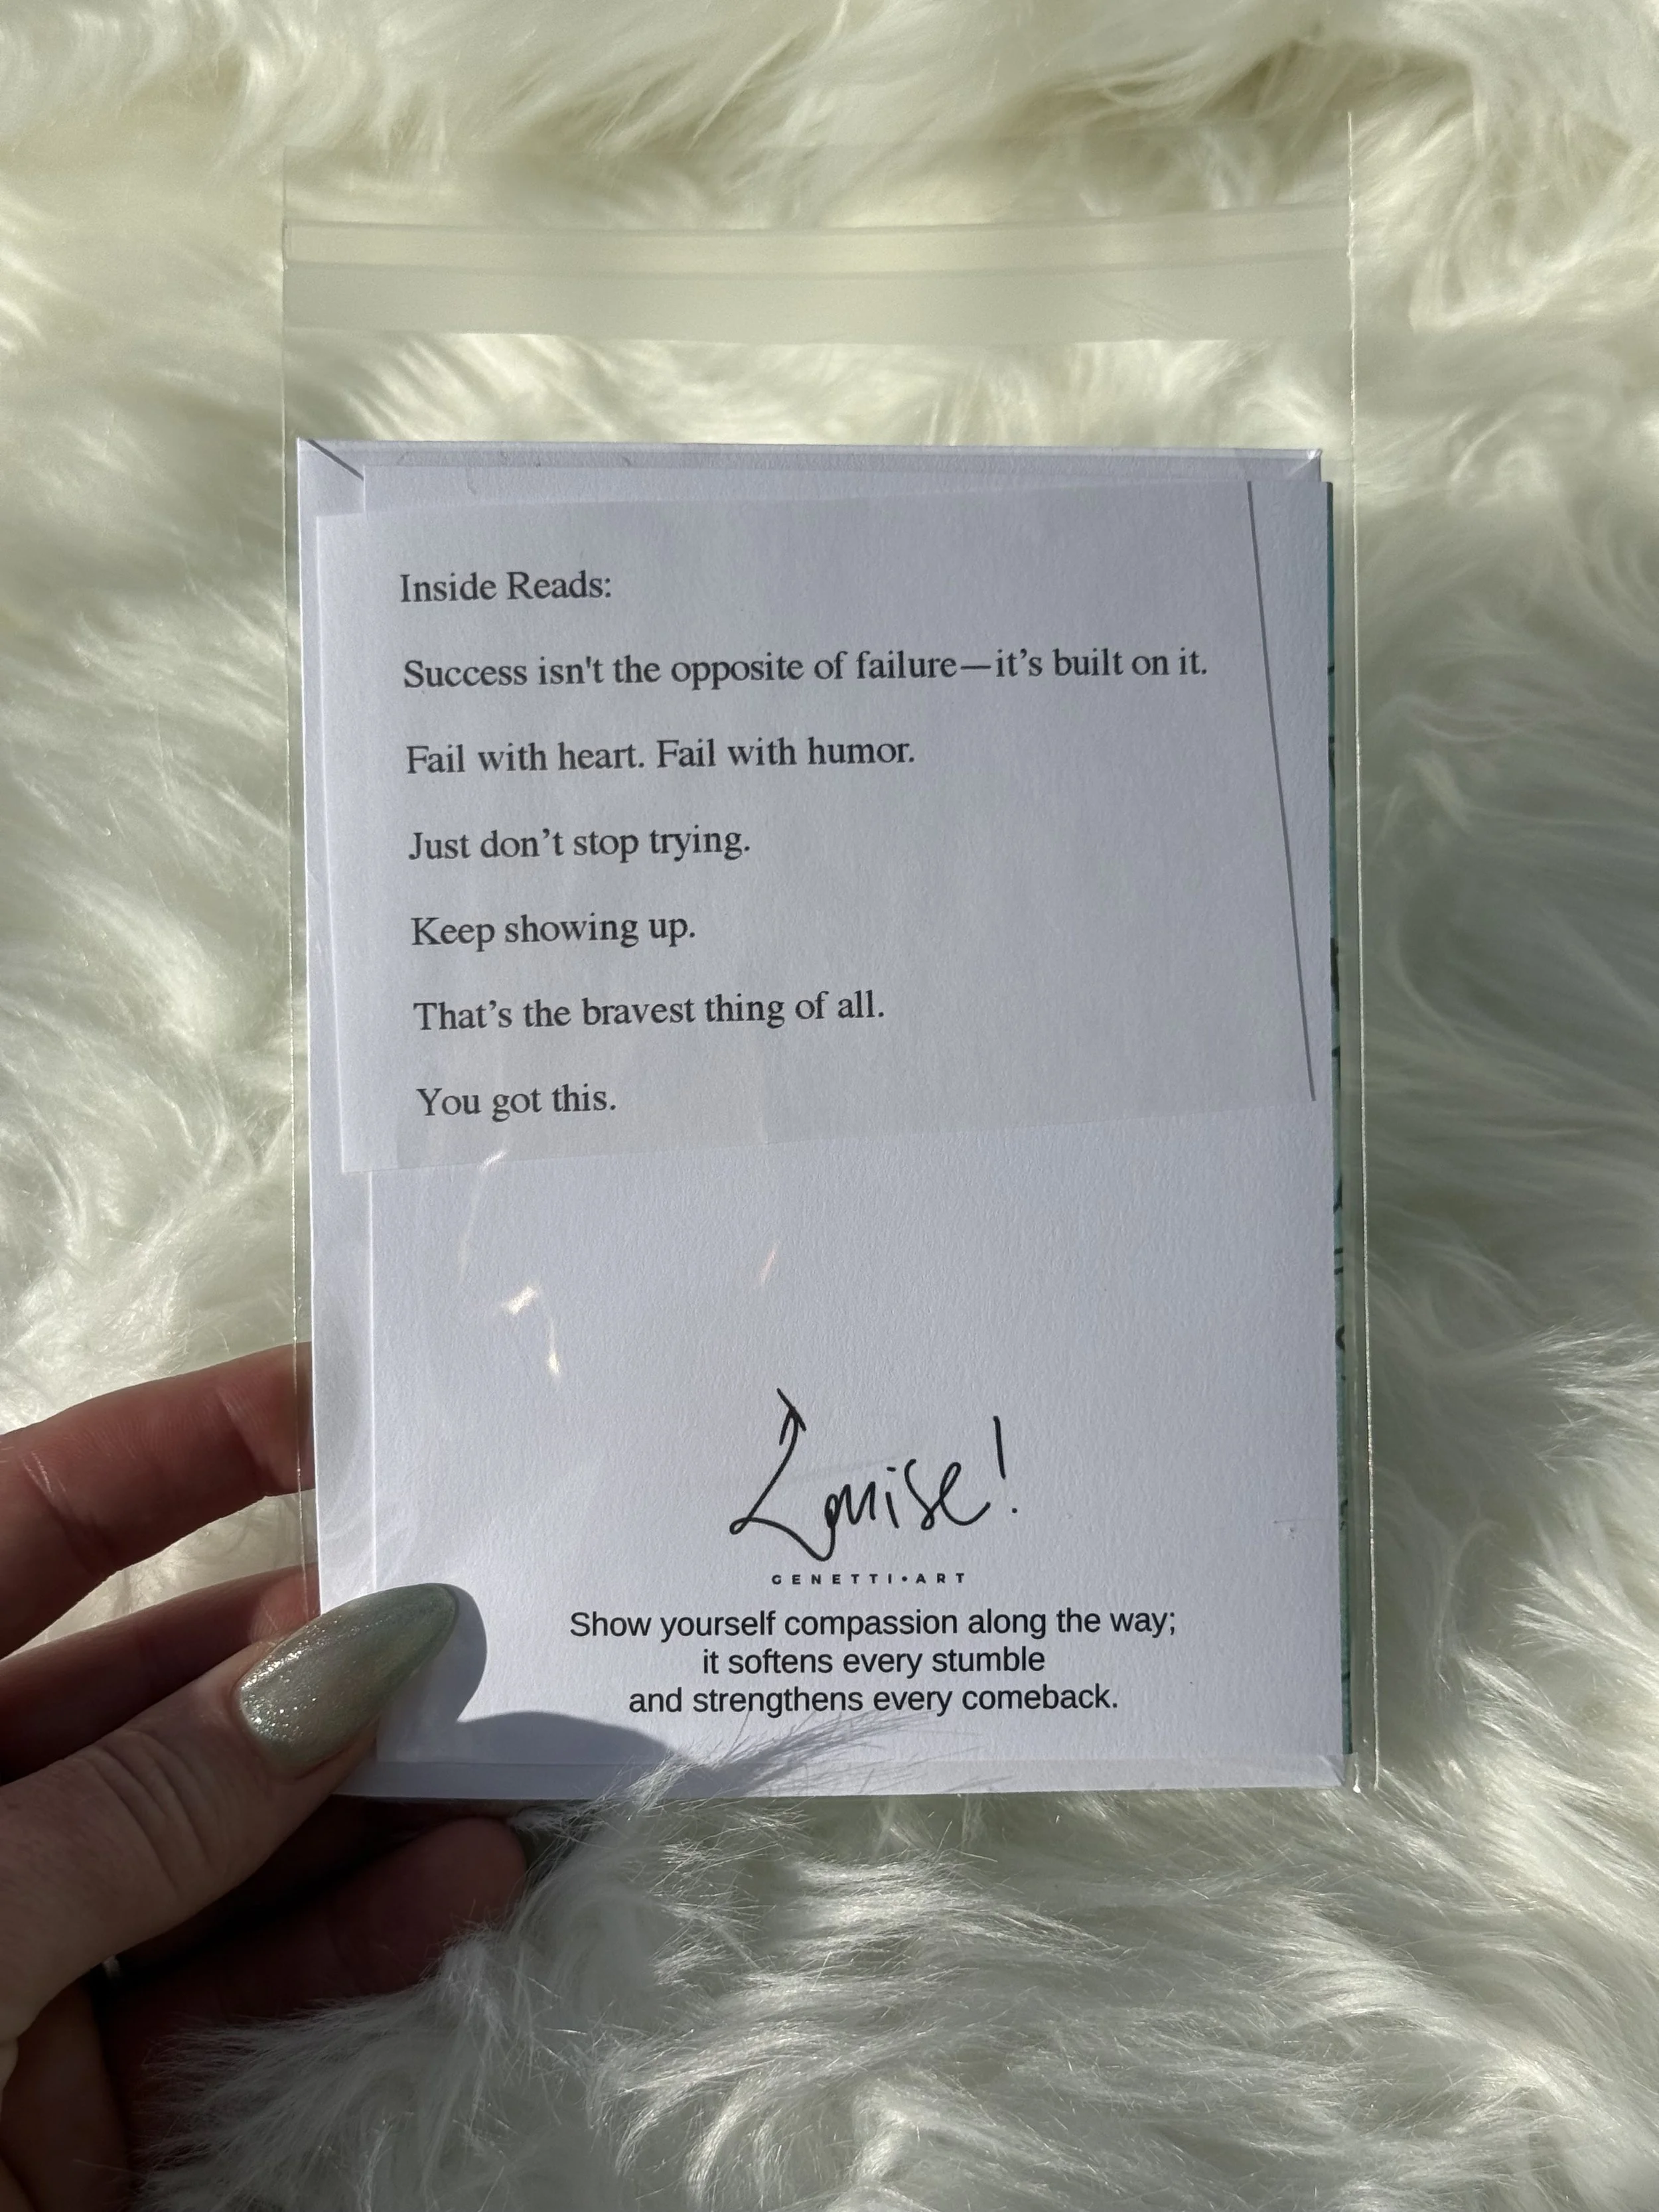 Inside Reads:
Success isn't the opposite of failure—it’s built on it.
Fail with heart. Fail with humor.
Just don’t stop trying.
Keep showing up.
That’s the bravest thing of all.
You got this.
Louise!
GENETTI•ART
Show yourself compassion along the way;
it softens every stumble
and strengthens every comeback.